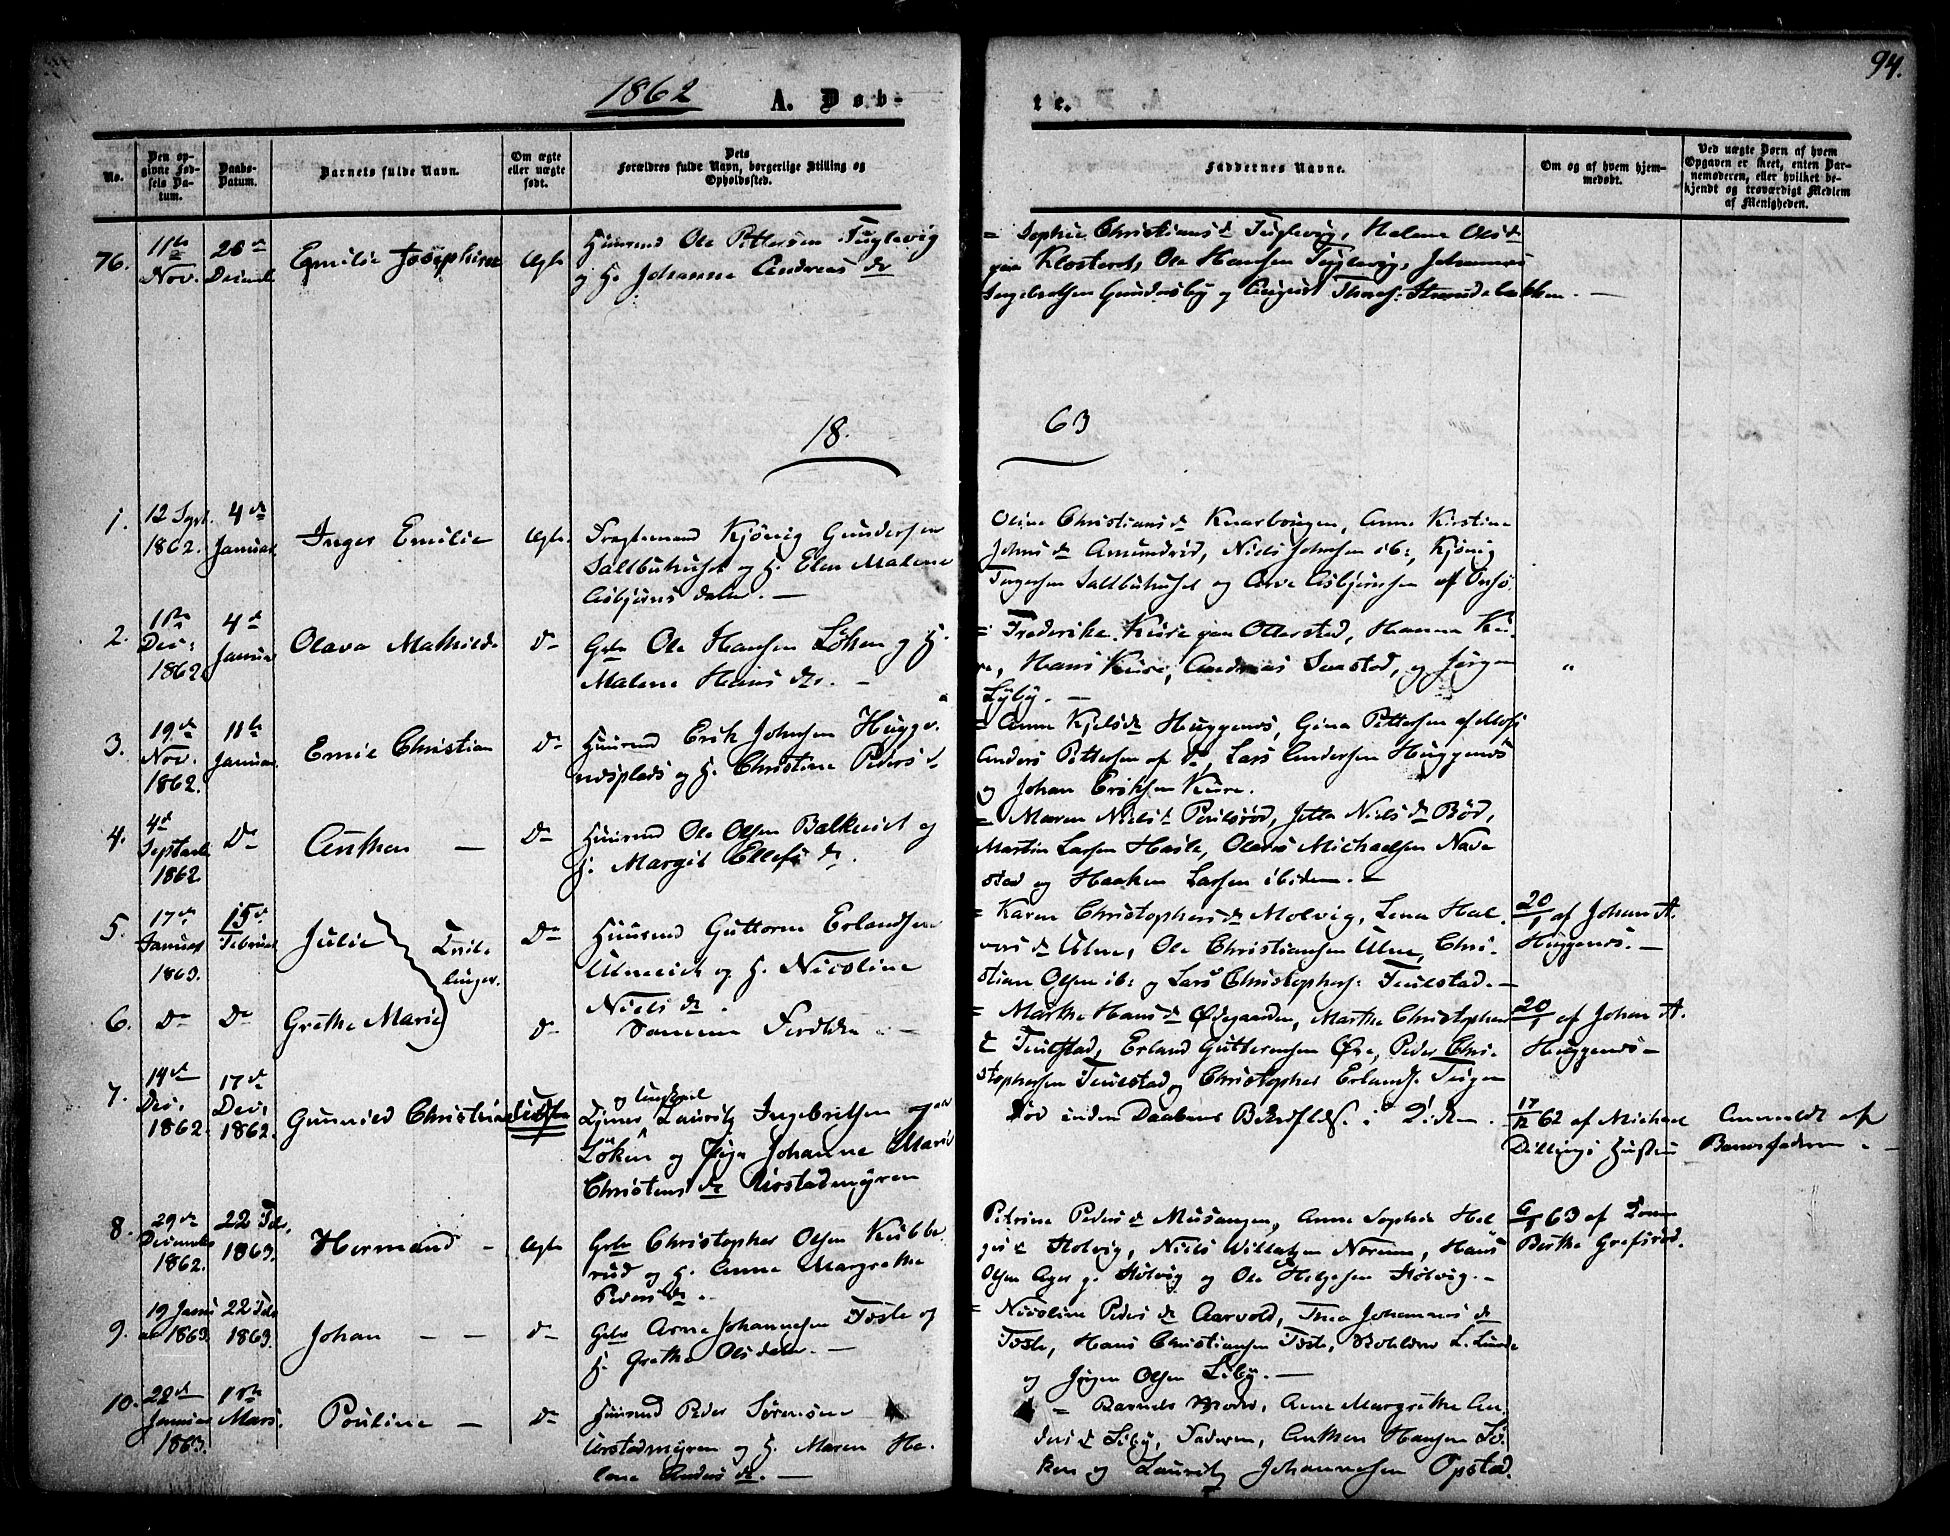 1862
A. Døb-
te.
94.
No.
Den opgivne Fødsels Datum.
Daabs-Datum.
Barnets fulde Navn.
Om ægte eller uægte født.
Dets Forældres fulde Navn, borgerlige Stilling og Opholdssted.
Faddernes Navne.
Om og af hvem hjemmedøbt.
Ved uægte Børn af hvem Opgaven er skeet, enten Barnemoderen, eller hvilket bekjendt og troværdigt Medlem af Menigheden.
76.
11te Nov.
26de Decemb.
Emilie Josephine
Ægte
Huusmd Ole Pettersen Fuglevig
og H. Johanne Andreas dr
= Sophie Christians dr Fuglevig, Helene Ols dr
paa Klosteret, Ole Hansen Fuglevig, Johannes
Ingebretsen Gundersby og August Thores: Strandebakken. —
18.
63
1.
12 Sept. 1862.
4de Januar
Inger Emilie
Ægte.
Fragtemand Kjönig Gundersen
Saltbuhuset og H. Elen Malene
Asbjörns datr. —
Oline Christians dr Knarbougen, Anne Kirstine
Johns dr Amundrød, Niels Johnsen ib:, Kjönig
Torgersen Saltbuhuset og Arve Asbjørnsen af Onsø.
2.
1ste Dec: 1862
4de Januar
Olava Mathilde
Do
Grbr Ole Hansen Löken og H.
Malene Hans dr. —
= Frederike Kure paa Otterstad, Hanna Ku-
re, Hans Kure, Andreas Svastad, og Jørgen
Lyby. —
"
3.
19de Nov. 1862.
11te Januar.
Emil Christian
Do
Huusmd Erik Johnsen Hugge-
nesplads og H. Christine Peders dr
= Anne Kjels dr Huggenes, Gina Pettersen af Moss
Anders Pettersen af do, Lars Andersen Huggenes
og Johan Eriksen Kure.
4.
4de Septemb. 1862.
Do
Anthon —
Do
Huusmd Ole Olsen Balke og
H. Margit Ellefs dr.
= Maren Niels dr Poulsrød, Jetta Niels dr Bød,
Martin Larsen Hasle, Olaves Michaelsen Nave
stad og Haaken Larsen ibidem. —
5.
17de Januar 1863.
15de Februar
Julie
Tvillinger.
Do
Huusmd Guttorm Erlandsen
og H. Nicoline
Niels dr.
= Karen Christophers dr Molvig, Lena Hal-
vors dr Ulne, Ole Christiansen Ulne, Chri-
stian Olsen ib: og Lars Christophers: Teulstad. —
20/1 af Johan A. Huggenes. —
6.
Do
Do
Grethe Marie
Do
Samme Forældre. —
= Marthe Hans dr Ødegaarden, Marthe Christophers
dr Teulstad, Erland Guttormsen Øre, Peder Chri-
stophersen Teulstad og Christopher Erlands. Teigen
20/1 af Johan A. Huggenes —
7.
14de Dec. 1862.
17de Dec: 1862.
Gunnild Christine
Uægte
og Ungkarl
Tjener Lauritz Ingebretsen
Löken og Pige Johanne Marie
Christens dr Urstadmyren
Død inden Daabens Bekræftelse i Kirken —
17/12 62 af Michael Dillings Hustru
Anmeldt af Barnefaderen. —
8.
29de December 1862.
22 Feb. 1863.
Hermand —
Ægte
Grbr Christopher Olsen Kubbe
rud og H. Anne Margrethe
Peders dr. —
Petrine Peders dr Mosangen, Anne Sophie Hel
ges dr Holvig, Niels Willatzen Norum, Hans
Olsen Ager p. Holvig og Ole Helgesen Holvig. —
6/1 63 af Berthe Grefsrød.
9.
19 Janu ar 1863.
22 Feb 1863.
Johan — —
do
Grbr Arne Johannesen Tosle og
H. Grethe Olsdatr. —
= Nicoline Peders dr Aarvold, Thea Johannes dr
Tosle, Hans Christiansen Tosle, L. Lunde
og Jørgen Olsen Liby. —
10.
22de Januar 1863.
1ste Mars.
Pouline —
do
Huusmd Peder Sørensen
Urstadmyren og H. Maren He-
lene Anders dr. —
= Barnets Moder, Anne Margrethe An-
ders dr Liby, Faderen, Anthon Hansen Lö-
ken og Lauritz Johannesen Opstad.